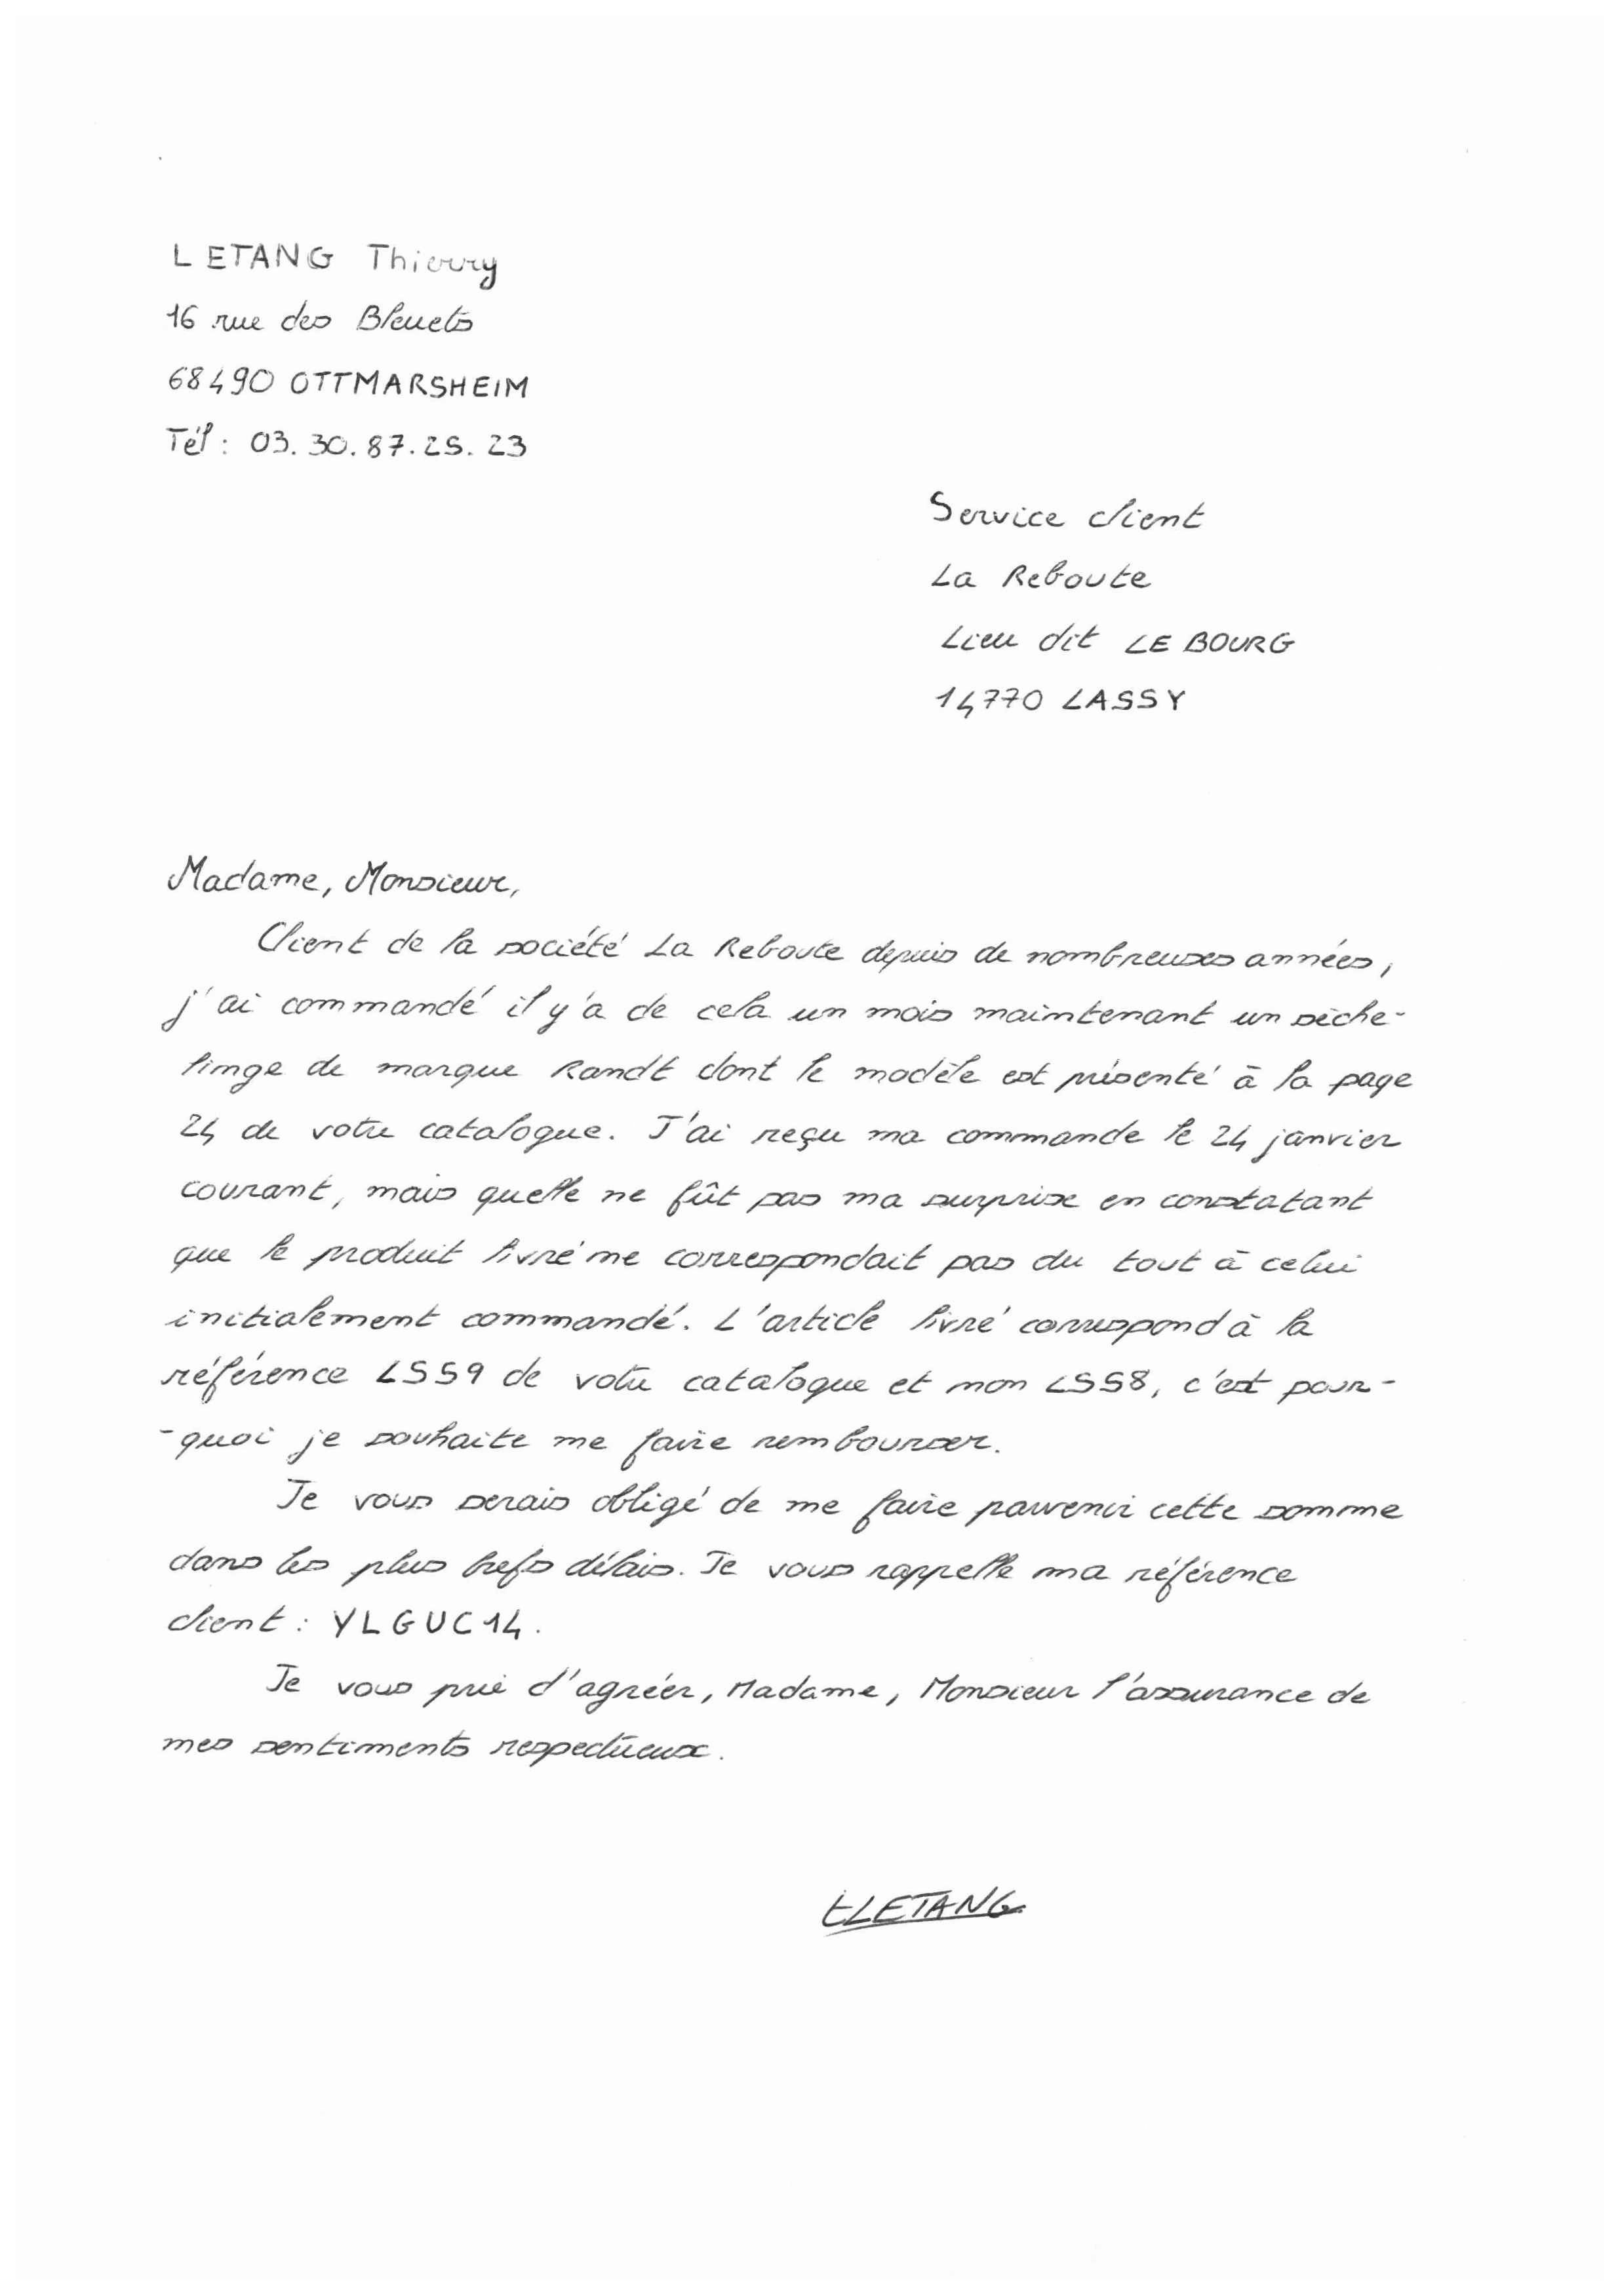 LETANG Thierry
16 rue des Bleuets
68490 OTTMARSHEIM
Tél : 03.30.87.25.23
Service client
La Reboute
Lieu dit LE BOURG
14770 LASSY
Madame, Monsieur,
Client de la société La Reboute depuis de nombreuses années,
j'ai commandé il y'a de cela un mois maintenant un sèche-
linge de marque Randt dont le modèle est présenté à la page
24 de votre catalogue. J'ai reçu ma commande le 24 janvier
courant, mais quelle ne fût pas ma surprise en constatant
que le produit livré ne correspondait pas du tout à celui
initialement commandé. L'article livré correspond à la
référence LSS9 de votre catalogue et non LSS8, c'est pour-
-quoi je souhaite me faire rembourser.
Je vous serais obligé de me faire parvenir cette somme
dans les plus brefs délais. Je vous rappelle ma référence
client : YLGUC14.
Je vous prie d'agréer, Madame, Monsieur l'assurance de
mes sentiments respectueux.
tLETANG